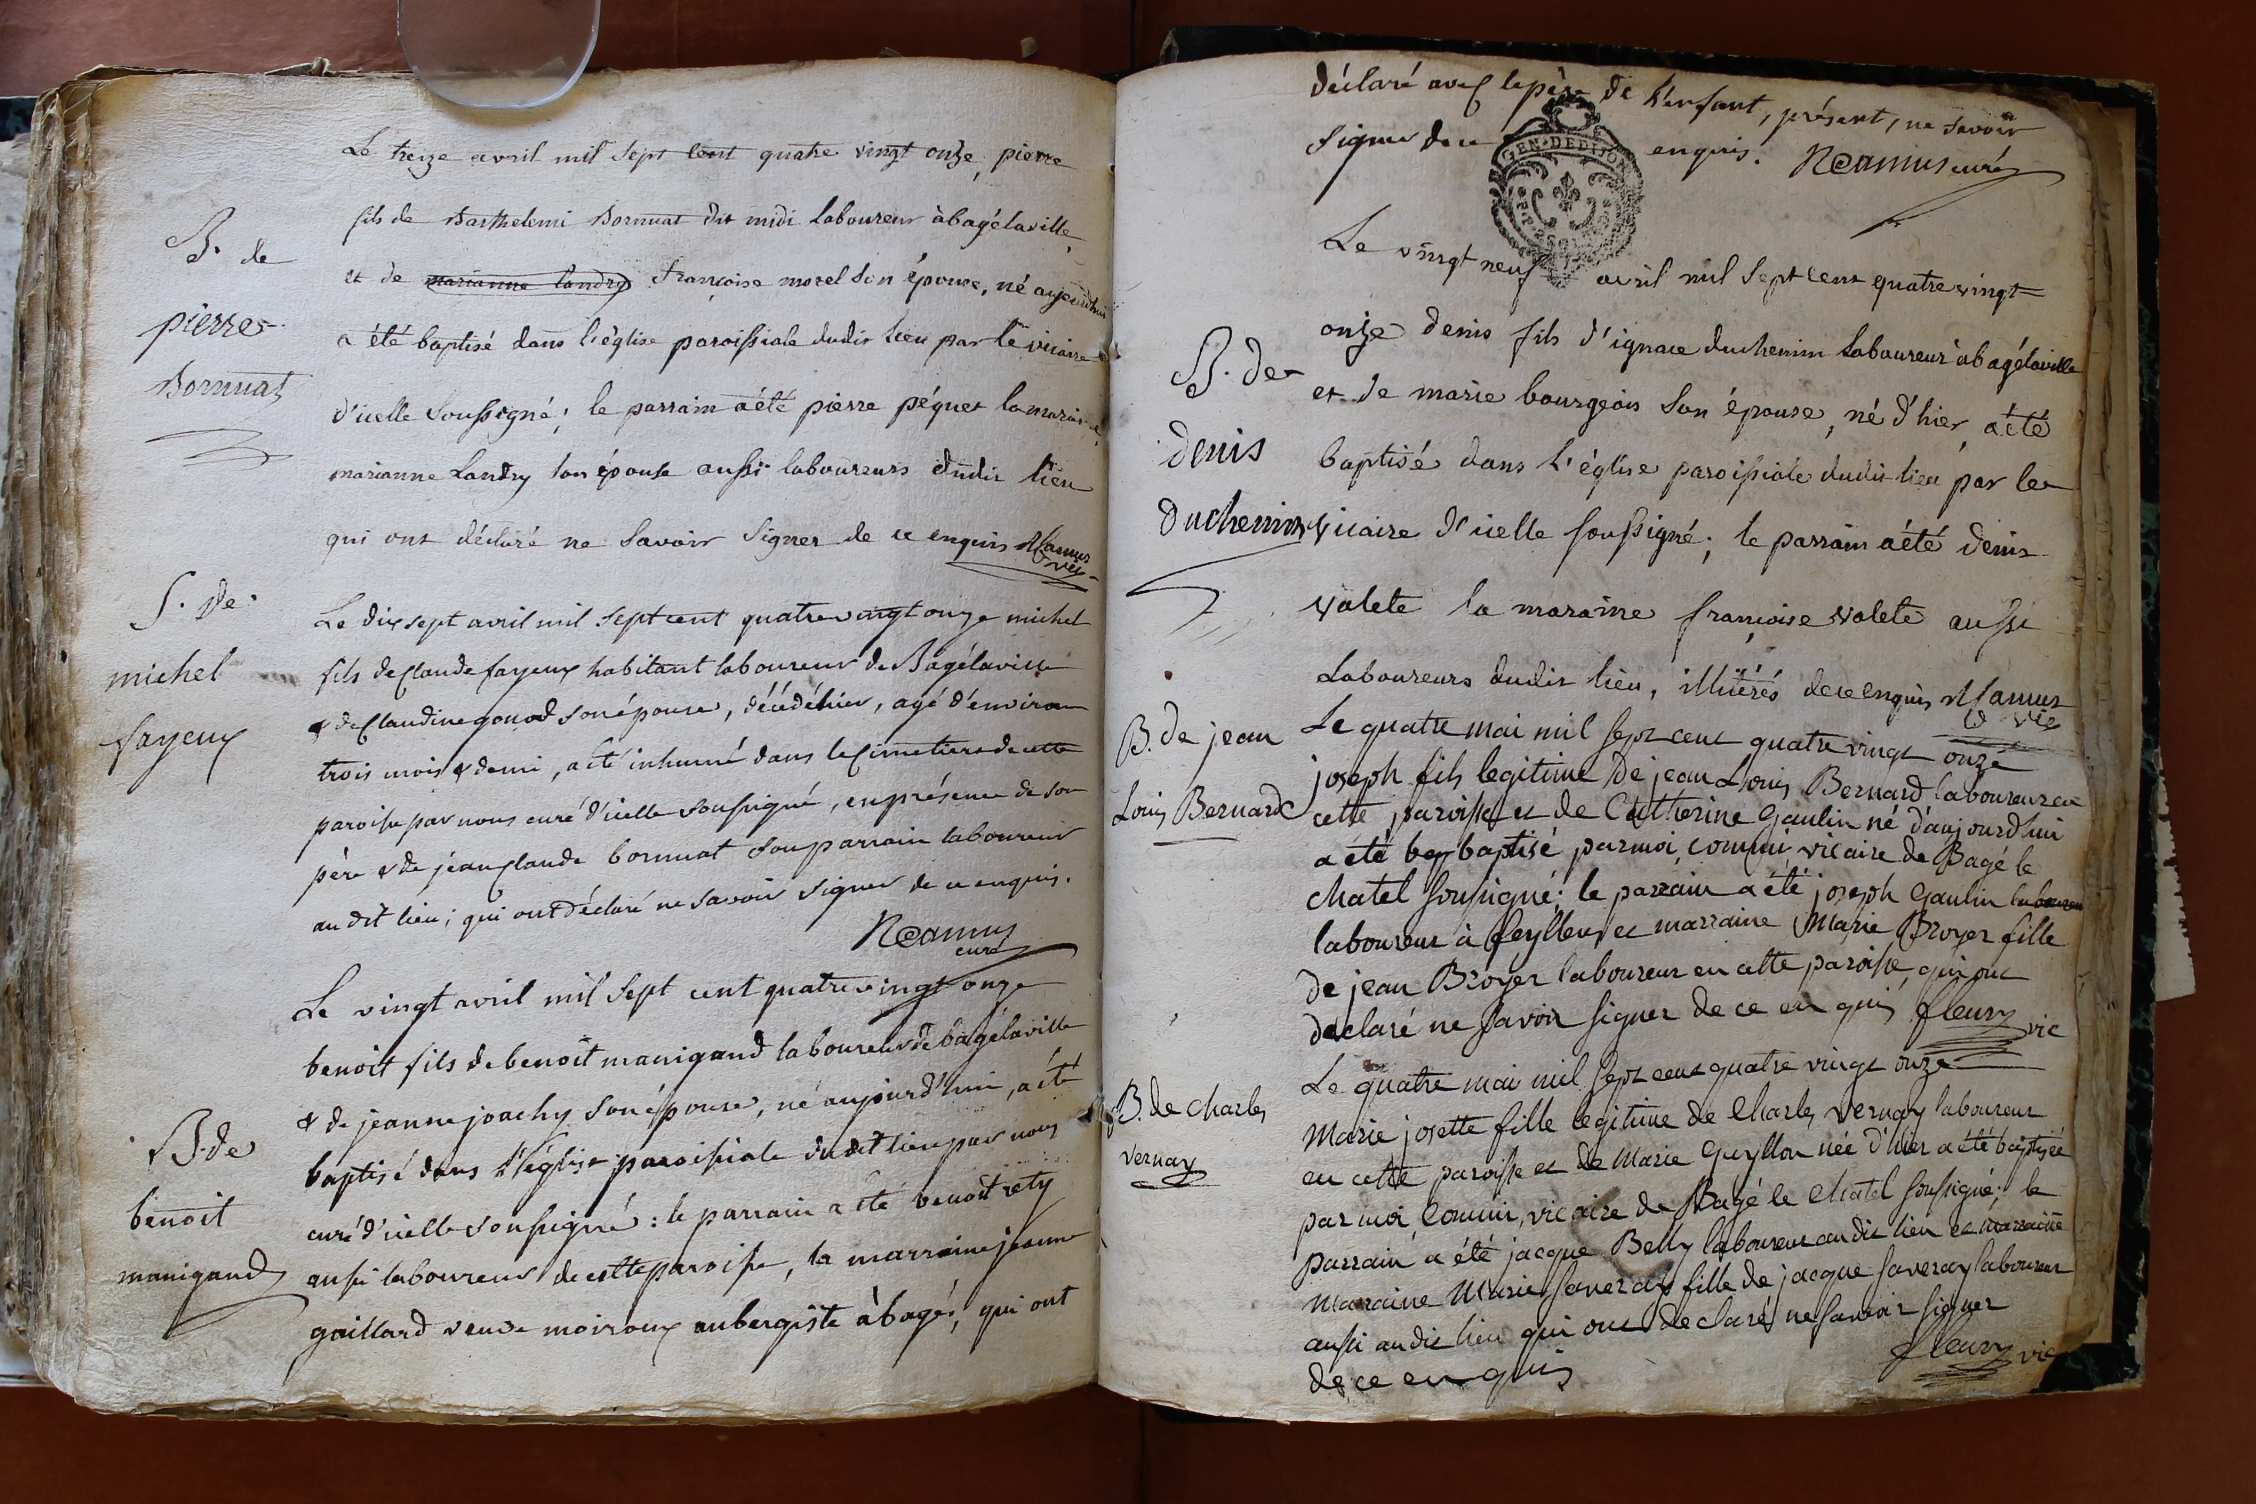 Le treize avril mil sept cent quatre vingt onze, pierre
fils de Barthelemi Bornuat dit midi laboureur à bagélaville,
B. de
et de marianne landry françoise morel son épouse, né aujourdhui
pierre
a été baptisé dans l'église paroissiale dudit lieu par le vicaire
Bornuat
d'icelle soussigné; le parrain a été pierre péquet la maraine,
marianne Landry son épouse aussi laboureurs dudit lieu
qui ont déclaré ne savoir signer de ce enquis NCamus
vic
S. de
Le dix sept avril mil sept cent quatre vingt onze michel
michel
fils de Claude fayeux habitant laboureur de Bagélaville
fayeux
& de Claudine gonod son épouse, décédé hier, agé d'environ
trois mois & demi, a été inhumé dans le Cimetiere de cette
paroisse par nous curé d'icelle soussigné, en présence de son
père & de jean Claude bornuat son parrain laboureur
au dit lieu; qui ont déclaré ne savoir signer de ce enquis.
NCamus
curé
Le vingt avril mil sept cent quatre vingt onze
benoit fils de benoît manigand laboureur de bagélaville
& de jeanne joachy son épouse, né aujourd'hui, a été
B. de
baptisé dans l'église paroissiale du dit lieu par nous
benoit
curé d'icelle soussigné: le parrain a été benoît réty
manigand
aussi laboureur de cette paroisse, la marraine jeanne
gaillard veuve moiroux aubergiste à bagé, qui ont
déclaré avec le père de l'enfant, présent, ne savoir
signer de ce enquis. NCamus curé
GEN. DE DIJON
Le vingt neuf avril mil sept cent quatre vingt
onze denis fils d'ignace duchenim laboureur à bagélaville
B. de
et de marie bourgeois son épouse, né d'hier, a été
denis
baptisé dans l'église paroissiale dudit lieu par le
duchenim
vicaire d'icelle soussigné; le parrain a été denis
valete la maraine françoise valete aussi
laboureurs dudit lieu, illitérés de ce enquis NCamus
vic
B. de jean
Louis Bernard
Le quatre mai mil sept cent quatre vingt onze
joseph fils legitime de jean Louis Bernard laboureur en
cette paroisse et de Catherine Gaulin né d'aujourd'hui
a été bap baptisé par moi commi vicaire de Bagé le
chatel soussigné; le parrain a été joseph Gaulin laboureur
laboureur à feyllens et marraine Marie Broyer fille
de jean Broyer laboureur en cette paroisse, qui ont
déclaré ne savoir signer de ce en quis fleury vic
B. de charles
vernay
Le quatre mai mil sept cent quatre vingt onze
Marie josette fille legitime de Charles vernay laboureur
en cette paroisse et de Marie Guyllon née d'hier a été baptisée
par moi commi, vicaire de Bagé le chatel soussigné; le
parrain a été jacque Belly laboureur au dit lieu et marraine
Marraine Marie saveray fille de jacque saveray laboureur
aussi au dit lieu qui ont declaré ne savoir signer
de ce en quis
fleury vic